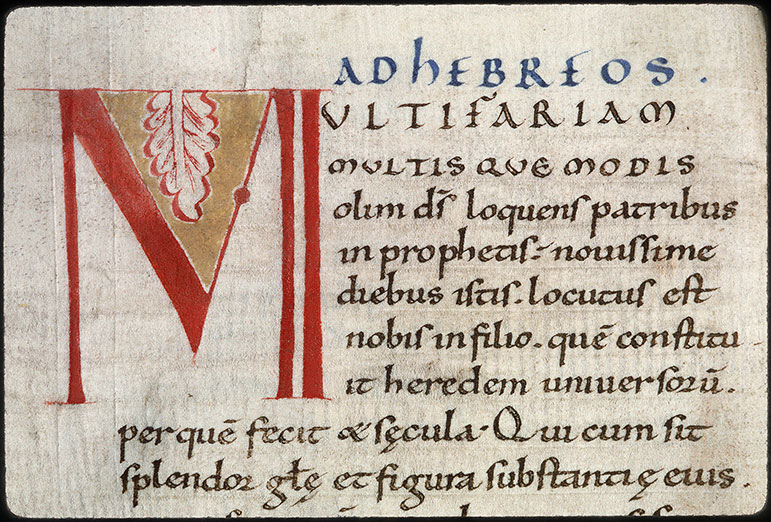 AD hEBREOS.
MULTIFARIAM
MULTISQUE MODIS
olim dſ̄ loquenſ patribus
in prophetiſ. nouiſſime
diebus iſtiſ. locutuſ eſt
nobiſ in filio. quē conſtitu
it heredem uniuerſorū.
per quē fecit & sęcula. Qui cum sit
splendor gl̄ę et figura subſtantię eius.